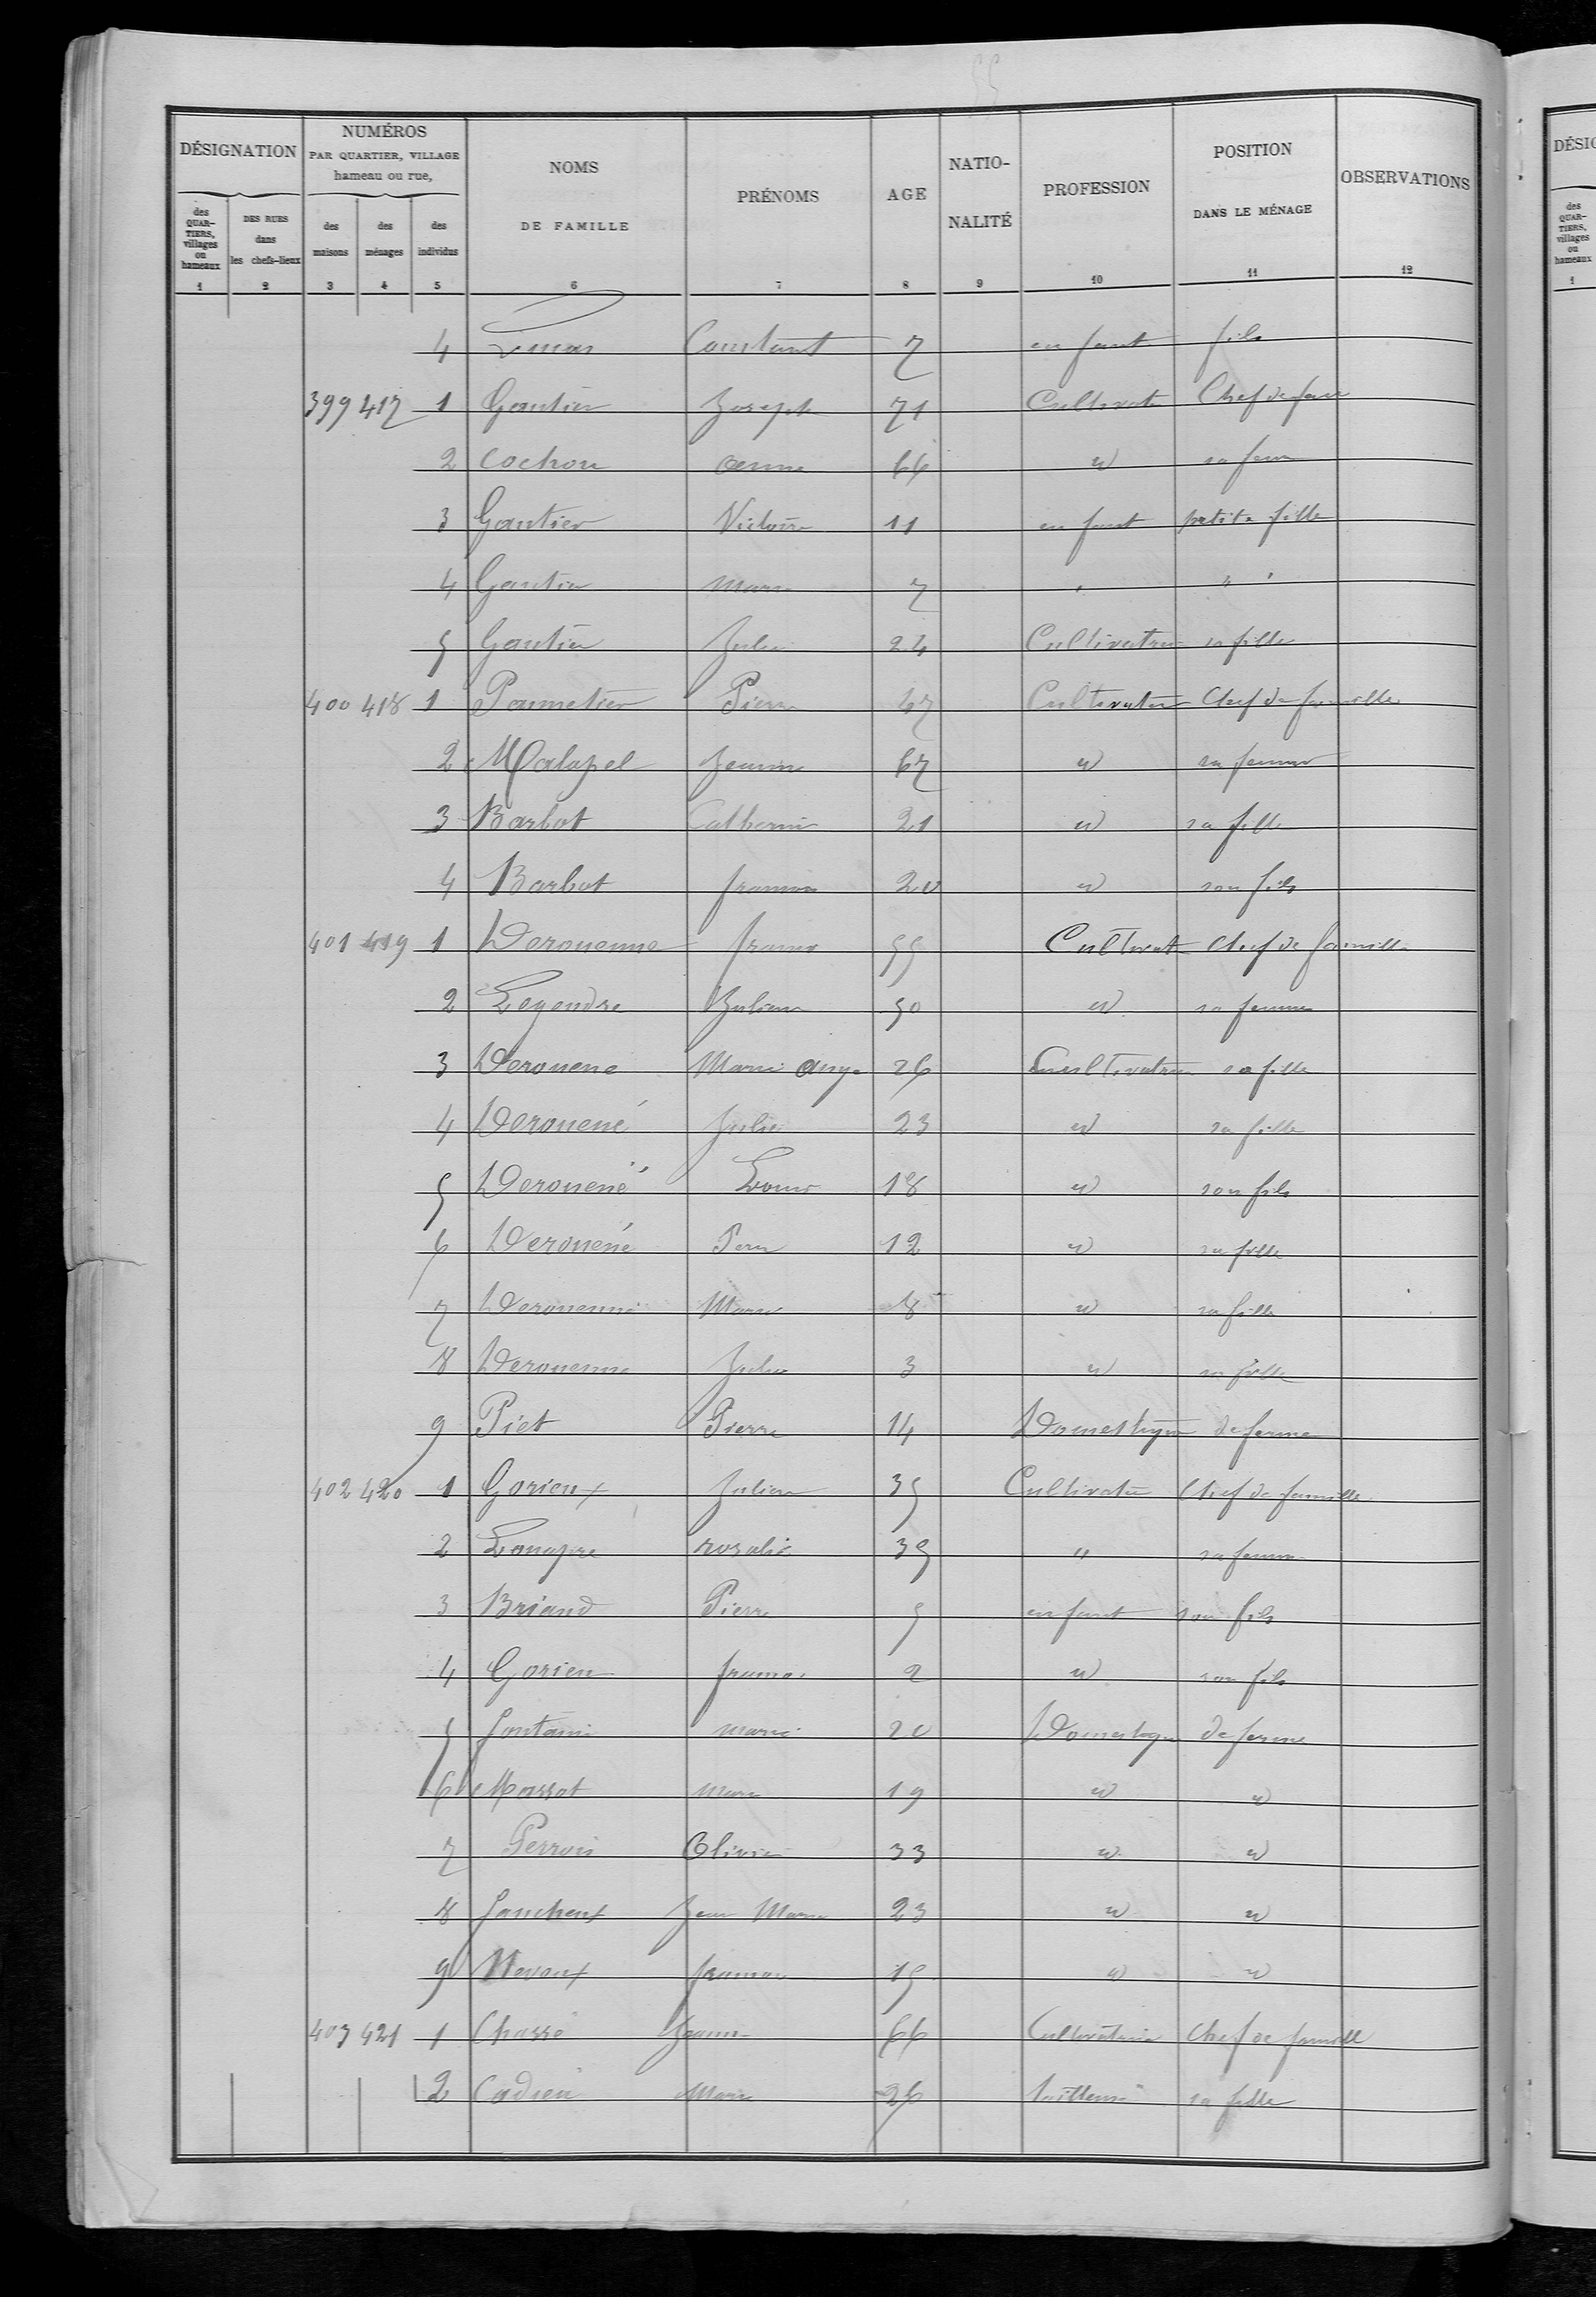 DÉSIGNATION
NUMÉROS
PAR QUARTIER, VILLAGE
hameau ou rue,
NOMS
DE FAMILLE
PRÉNOMS
AGE
NATIO-
NALITÉ
PROFESSION
POSITION
DANS LE MÉNAGE
OBSERVATIONS
des QUAR-TIERS, villages ou hameaux
DES RUES dans les chefs-lieux
des maisons
des ménages
des individus
1 2 3 4 5 6 7 8 9 10 11 12
4 Constant 7 enfant fils
399 417 1 Gautier Joseph 71 Cultivate Chef de fam
2 Cochon anne 66 id sa fem
3 Gautier Victoire 11 enfant petite fille
4 Gautier Marie 7 " " "
5 Gautier Julie 24 Cultivatrice sa fille
400 418 1 Paumetier Pierre 67 Cultivateur Chef de famille
2 Malapel Jeanne 67 id sa femme
3 Barbot Catherine 21 id sa fille
4 Barbot francois 20 id son fils
401 419 1 Derouenne franco 55 Cultivat chef de famille
2 Legendre Julienne 50 id sa femme
3 Derouene Marie ange 26 Cultivatrice sa fille
4 Derouené Julie 23 id sa fille
5 Derouené Louis 18 id son fils
6 Derouené 12 id sa fille
7 Derouenné Marie 8 id sa fille
8 Derouenne Julie 3 id sa fille
9 Piet Pierre 14 Domestique de ferme
402 420 1 Gorieux Julien 35 Cultivateur Chef de famille
2 rosalie 35 " sa femme
3 Briand Pierre 5 enfant son fils
4 Gorieu 2 id son fils
5 fontaine marie 20 Domestique de ferme
6 Massot marie 19 id id
7 Perrois Olivier 33 id id
8 faucheux Jean Marie 23 id id
9 Nevoux 15 id id
403 421 1 Chassé Jeanne 66 Cultivatrice chef de famill
2 Cadieu Marie 26 sa fille
DÉSIG
des QUAR-TIERS, villages ou hameaux
1